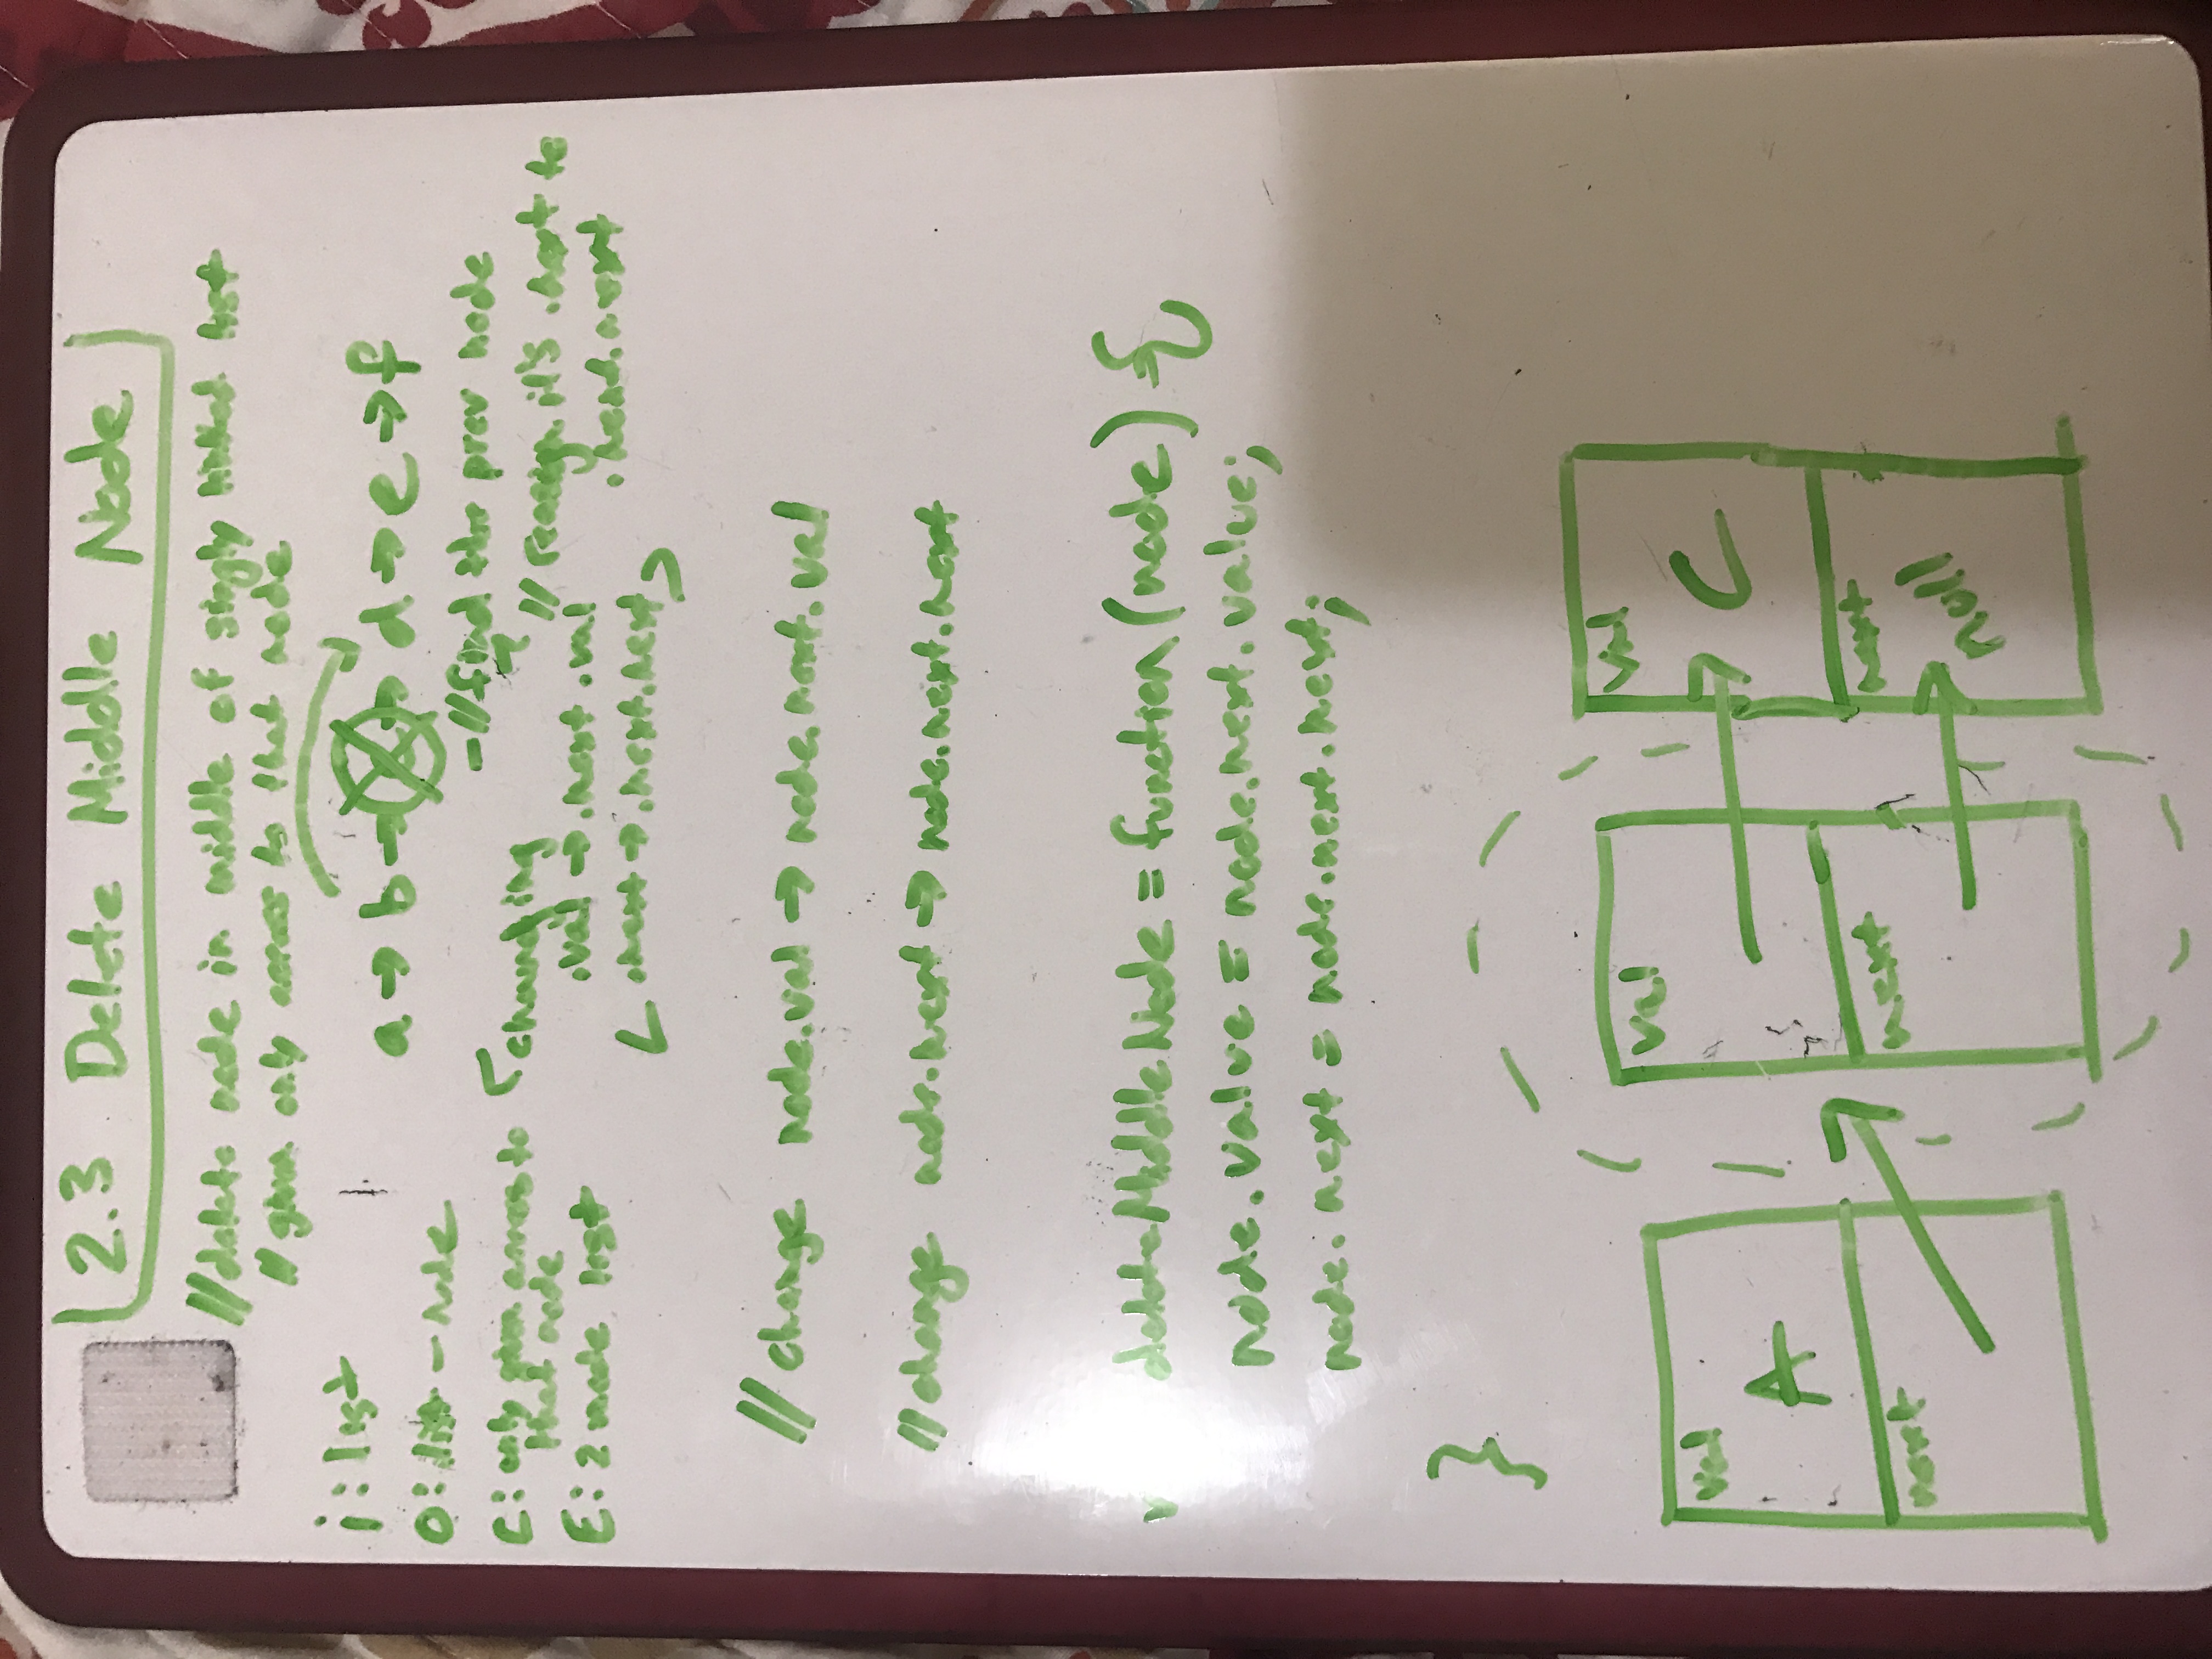 2.3 Delete Middle Node
//delete node in middle of singly linked list
// given only access to that node
i: list
a → b → c → d → e → f
o: list - node
- //find the prev node
c: only given access to
that node
changing
// reassign it's .next to
.head.next
E: 2 node list
.val → .next.val
.next → .next.next
// change node.val → node.next.val
// change node.next → node.next.next
deleteMiddleNode = function(node) {
node.value = node.next.value;
node.next = node.next.next;
}
val
A
next
val
next
val
C
next
null